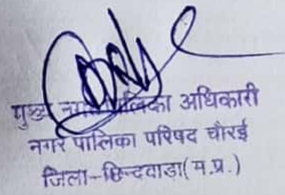 मुख्य नगर पालिका अधिकारी
नगर पालिका परिषद चौरई
जिला-छिन्दवाड़ा (म.प्र.)